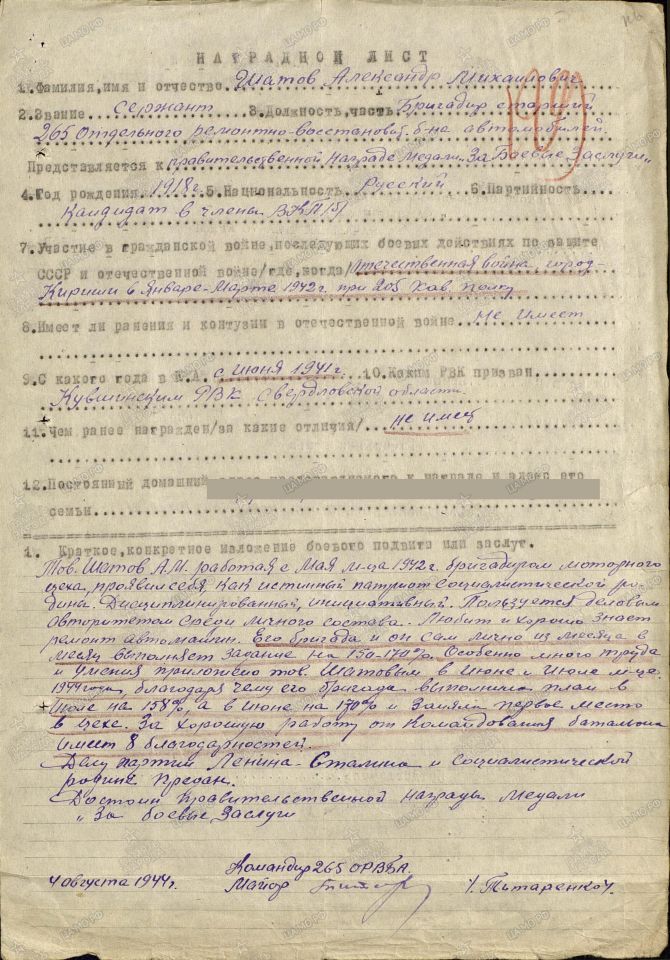 НАГРАДНОЙ ЛИСТ
1. Фамилия, имя и отчество Шатов Александр Михайлович
2. Звание Сержант 3. Должность, часть Бригадир старший
265 Отдельного ремонтно-восстановит. б-на автомобилей.
Представляется к правительственной награде Медали "За Боевые Заслуги"
4. Год рождения 1918г. 5. Национальность Русский 6. Партийность
Кандидат в члены ВКП/б/
7. Участие в гражданской войне, последующих боевых действиях по защите
СССР и отечественной войне/где, когда/ отечественная война, город-
Кириши в Январе-Марте 1942г. при 205 Кав. полку
8. Имеет ли ранения и контузии в отечественной войне Не имеет
9. С какого года в К.А. с июня 1941г. 10. Каким РВК призван
Кувшинским РВК Свердловской области
11. Чем ранее награжден/за какие отличия/ не имеет
12. Постоянный домашний
семьи
1. Краткое, конкретное изложение боевого подвига или заслуг.
Тов. Шатов А.М. работая с Мая м-ца 1942г. бригадиром моторного
цеха, проявил себя, как истинный патриот Социалистической ро-
дины. Дисциплинированный, инициативный. Пользуется деловым
авторитетом среди личного состава. Любит и хорошо знает
ремонт автомашин. Его бригада и он сам лично из месяца в
месяц выполняет задание на 150-170%. Особенно много труда
и умения приложено тов. Шатовым в Июне и Июле м-це
1944 года, благодаря чему его бригада выполнила план в
Июле на 158%, а в июне на 170% и заняла первое место
в цехе. За хорошую работу от Командования батальона
имеет 8 благодарностей.
Делу партии Ленина-Сталина и Социалистической
родине предан.
Достоин правительственной награды Медали
"За боевые Заслуги
Командир 265 ОРВБА
4 августа 1944г. Майор /. Титаренко /.